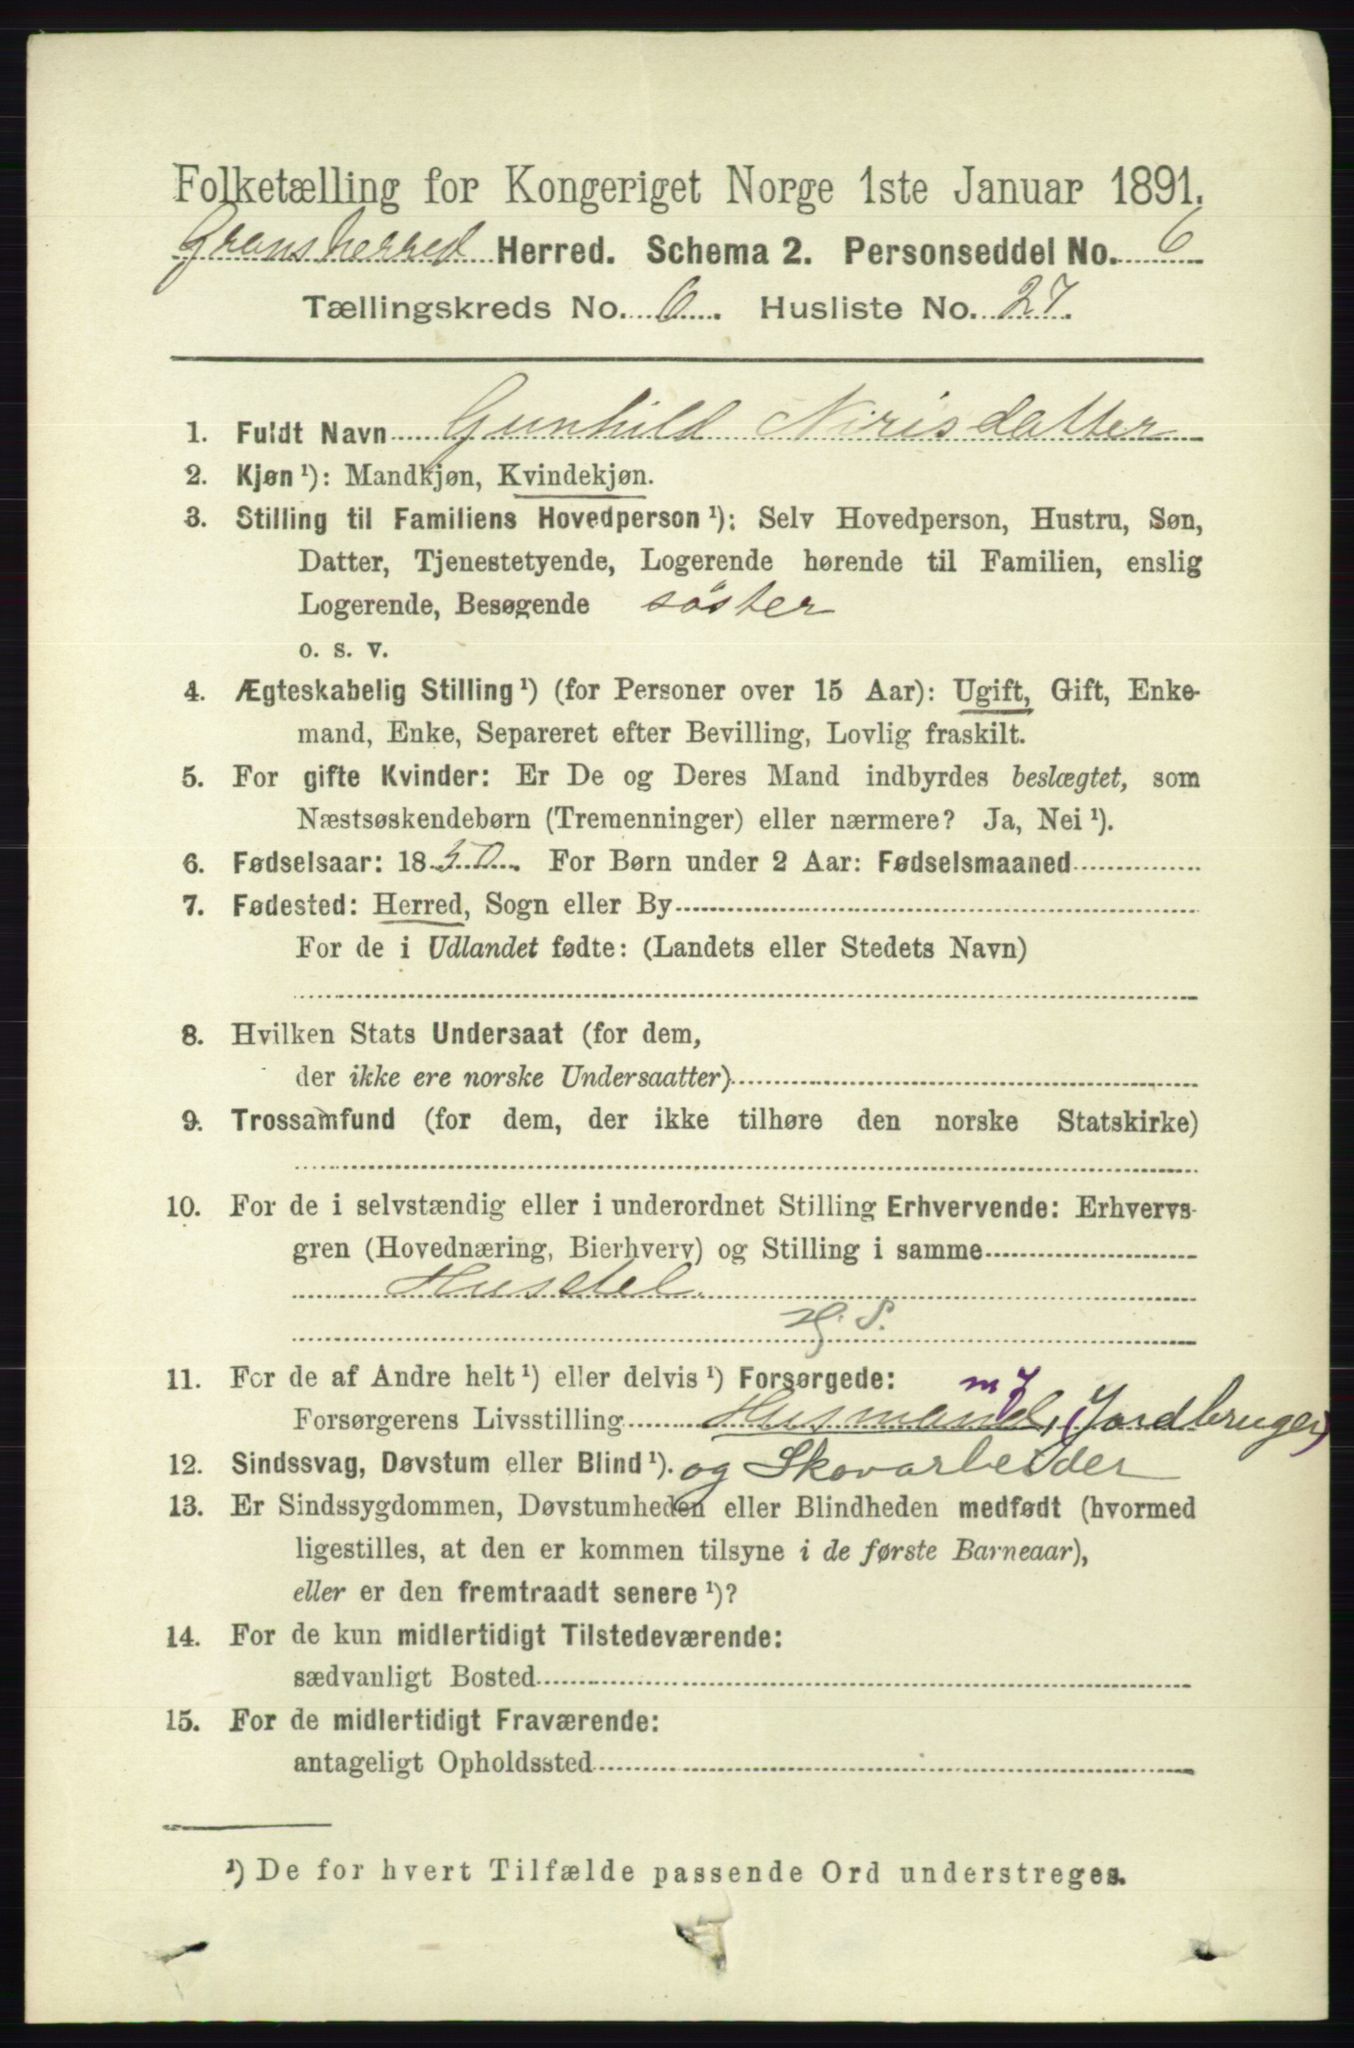 Folketælling for Kongeriget Norge 1ste Januar 1891.
Gransherred Herred. Schema 2. Personseddel No. 6
Tællingskreds No. 6. Husliste No. 27.
1. Fuldt Navn Gunhild Nirisdatter
2. Kjøn ¹): Mandkjøn, Kvindekjøn.
3. Stilling til Familiens Hovedperson ¹): Selv Hovedperson, Hustru, Søn,
Datter, Tjenestetyende, Logerende hørende til Familien, enslig
Logerende, Besøgende søster
o. s. v.
4. Ægteskabelig Stilling ¹) (for Personer over 15 Aar): Ugift, Gift, Enke-
mand, Enke, Separeret efter Bevilling, Lovlig fraskilt.
5. For gifte Kvinder: Er De og Deres Mand indbyrdes beslægtet, som
Næstsøskendebørn (Tremenninger) eller nærmere? Ja, Nei ¹).
6. Fødselsaar: 1850. For Børn under 2 Aar: Fødselsmaaned
7. Fødested: Herred, Sogn eller By
For de i Udlandet fødte: (Landets eller Stedets Navn)
8. Hvilken Stats Undersaat (for dem,
der ikke ere norske Undersaatter)
9. Trossamfund (for dem, der ikke tilhøre den norske Statskirke)
10. For de i selvstændig eller i underordnet Stilling Erhvervende: Erhvervs-
gren (Hovednæring, Bierhverv) og Stilling i samme
Husstel
H. S.
11. For de af Andre helt ¹) eller delvis ¹) Forsørgede:
m J
Forsørgerens Livsstilling Husmand, (Jordbruger)
12. Sindssvag, Døvstum eller Blind ¹). og Skovarbeider
13. Er Sindssygdommen, Døvstumheden eller Blindheden medfødt (hvormed
ligestilles, at den er kommen tilsyne i de første Barneaar),
eller er den fremtraadt senere ¹)?
14. For de kun midlertidigt Tilstedeværende:
sædvanligt Bosted
15. For de midlertidigt Fraværende:
antageligt Opholdssted
¹) De for hvert Tilfælde passende Ord understreges.